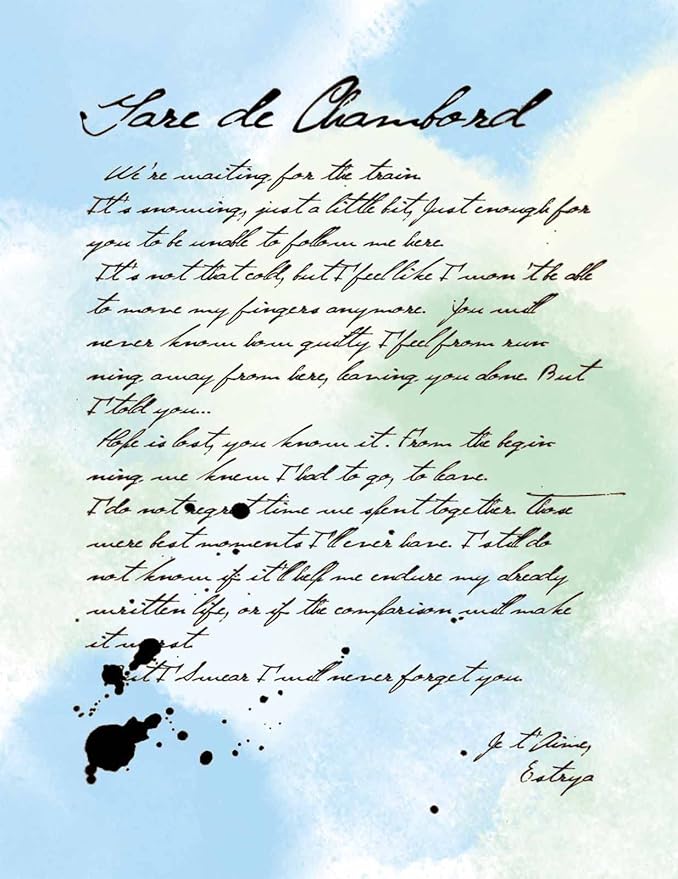 Gare de Chambord
We're waiting for the train.
It's snowing, just a little bit, Just enough for
you to be unable to follow me here.
It's not that cold, but I feel like I won't be able
to move my fingers anymore. You will
never know how guilty I feel from run
ning away from here, leaving you alone. But
I told you...
Hope is lost, you know it. From the begin
ning, we knew I had to go, to leave.
I do not regret time we spent together. Those
were best moments I'll ever have. I still do
not know if it'll help me endure my already
written life, or if the comparison will make
it worst.
But I Swear I will never forget you.
Je t'Aime,
Estrya